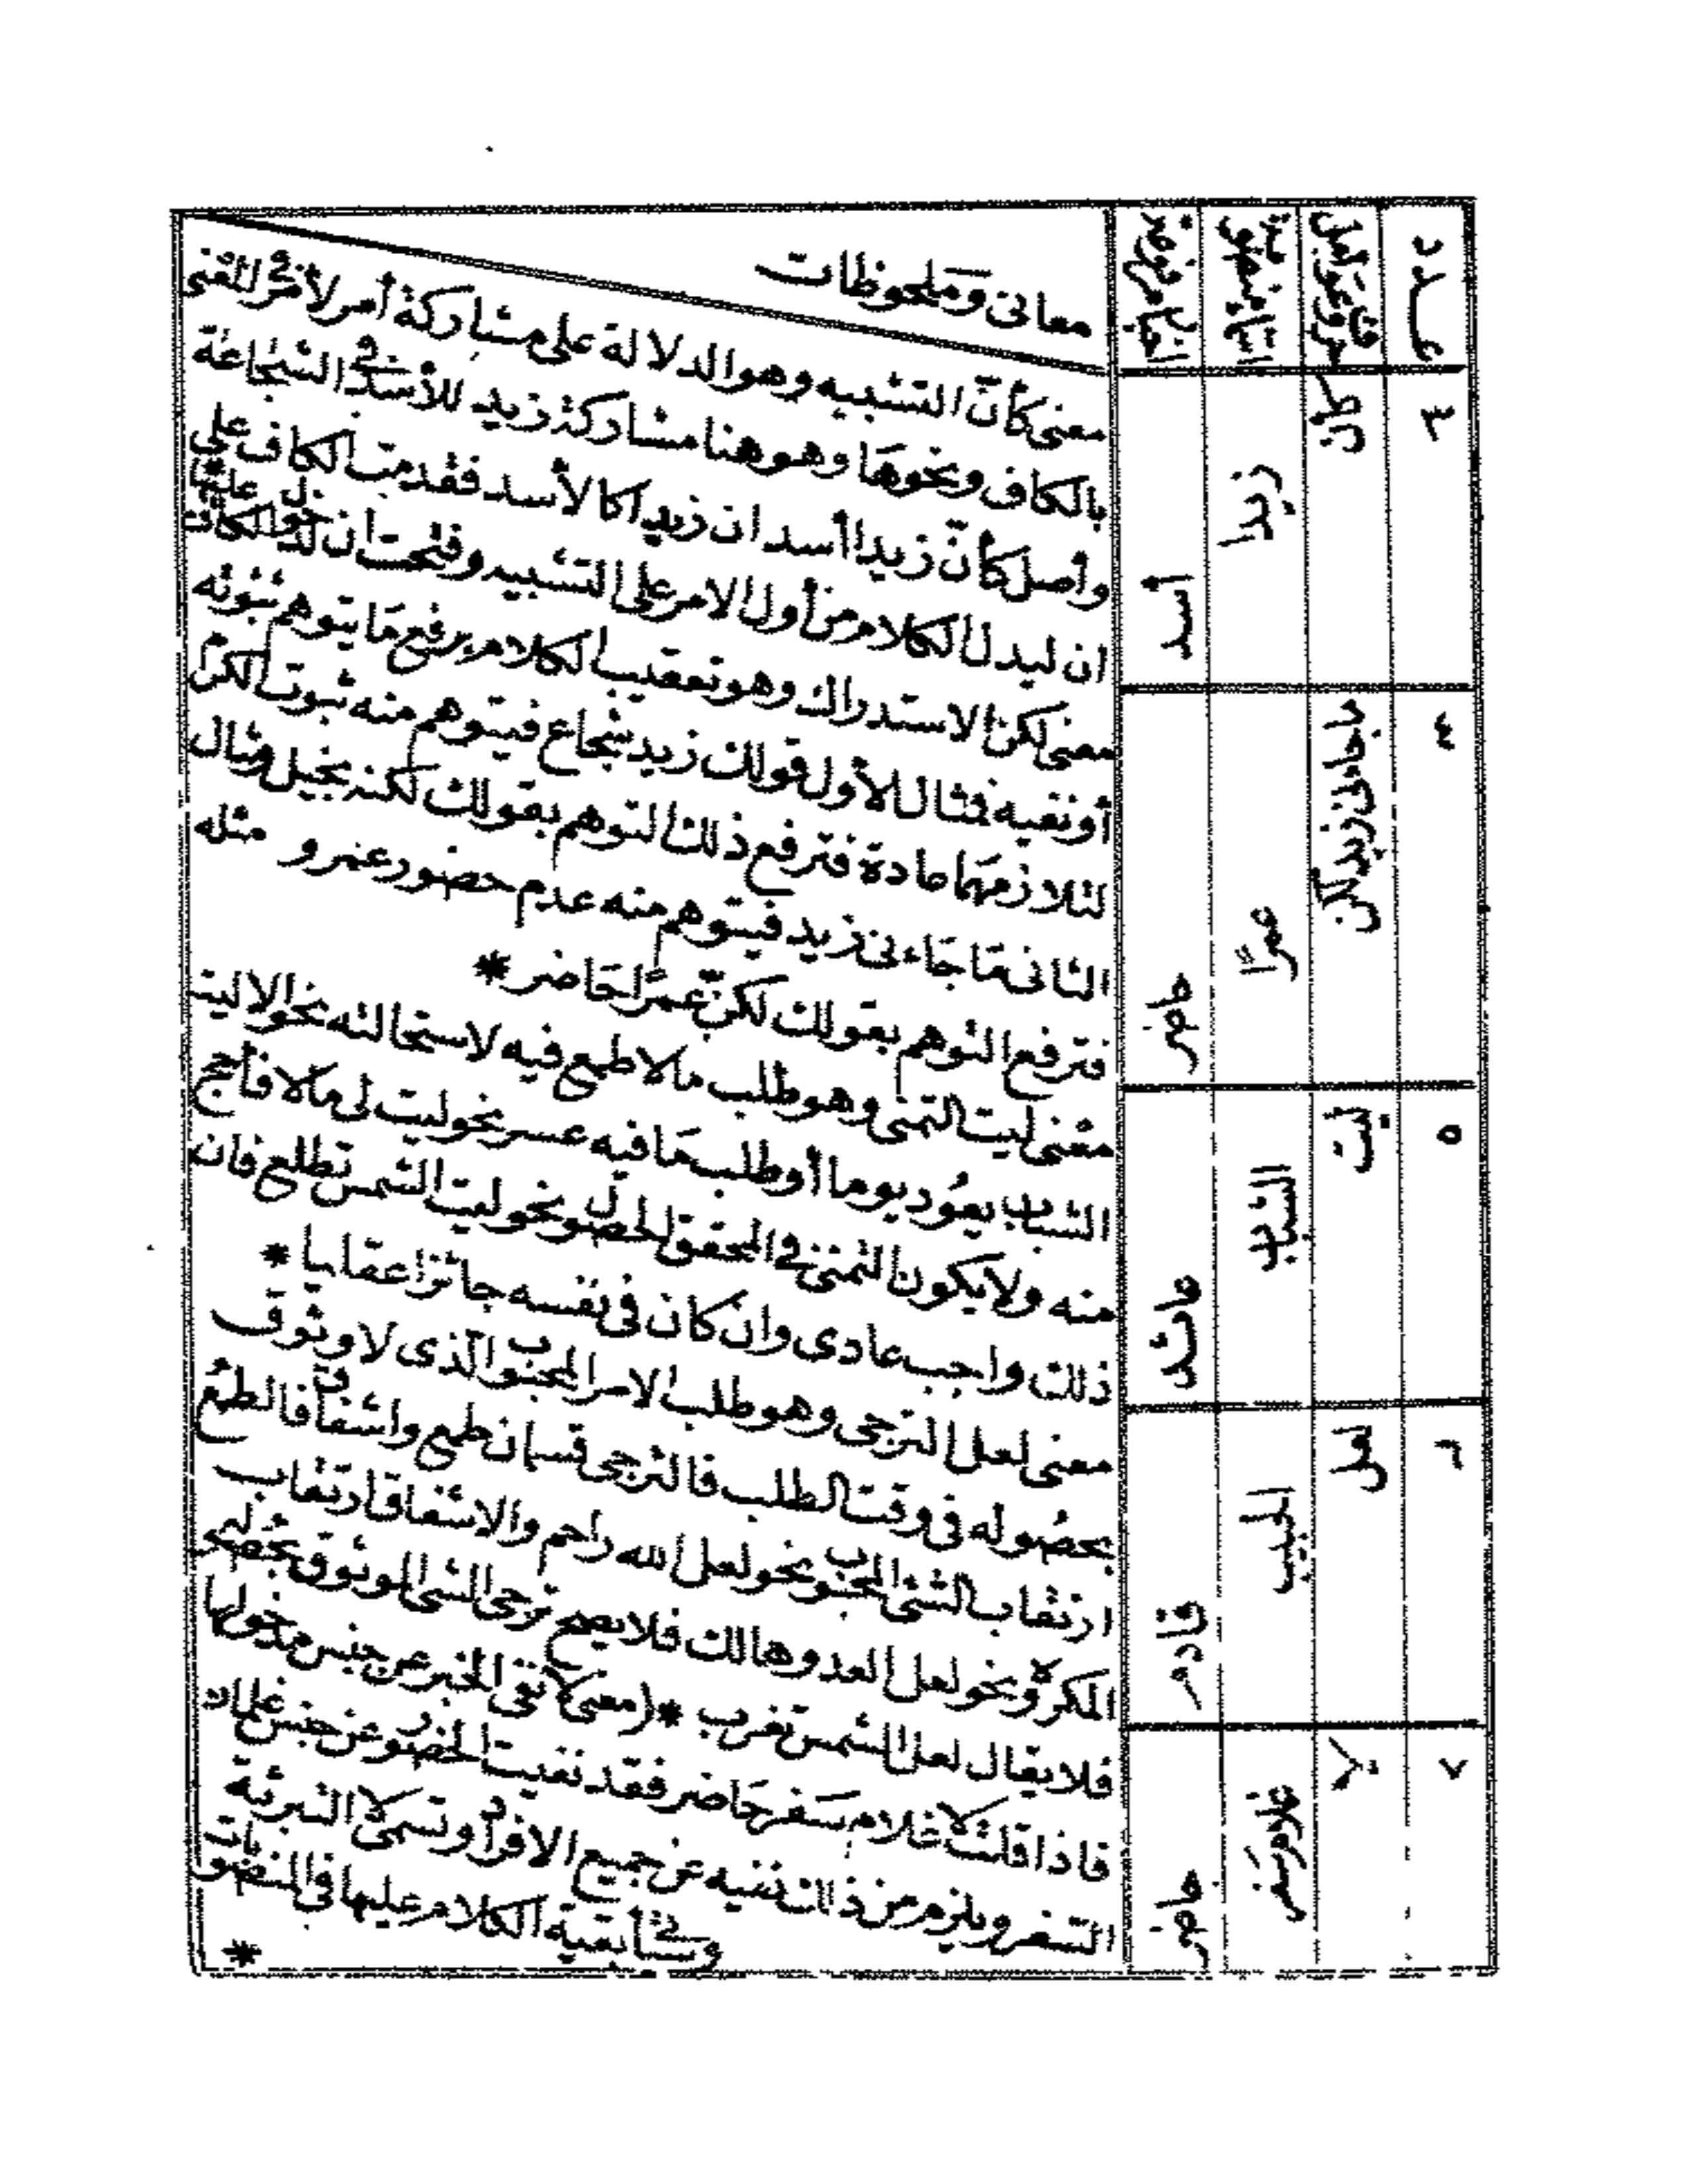 عدد
حروف عوامل
أسماء منصوبة
أخبار مرفوعة
معانى وملحوظات
٣
كأن
زيدا
أسد
معنى كأنّ التشبيه وهو الدلالة على مشاركة أمر لأمر فى المعنى
بالكاف ونحوها وهو هنا مشاركة زيد للأسد فى الشجاعة
وأصل كأنّ زيدا أسد ان زيدا كالأسد فقدمت الكاف على
ان ليدل الكلام من أول الامر على التشبيه وفتحت ان لدخول الكاف عليها
٤
ما جاءنى زيد لكن
عمرًا
حاضر
معنى لكنّ الاستدراك وهو تعقيب الكلام برفع ما يتوهم ثبوته
أو نفيه فمثال للأول قولك زيد شجاع فيتوهم منه ثبوت الكرم
لتلازمهما عادة فترفع ذلك التوهم بقولك لكنه بخيل ومثال
الثانى ما جاءنى زيد فيتوهم منه عدم حضور عمرو مثله
فترفع التوهم بقولك لكنّ عمرًا حاضر *
٥
ليت
الشباب
عائد
معنى ليت التمنى وهو طلب ما لا طمع فيه لاستحالته نحو الا ليت
الشباب يعود يوما أو طلب ما فيه عسر نحو ليت لى مالا فأحج
منه ولا يكون التمنى فى المحقق الحصول نحو ليت الشمس تطلع فان
ذلك واجب عادى وان كان فى نفسه جائزا عقليا *
٦
لعل
الحبيب
قادم
معنى لعل الترجى وهو طلب الامر المحبوب الذى لا وثوق
بحصوله فى وقت الطلب فالترجى قسمان طمع واشفاق فالطمع
ارتقاب الشئ المحبوب نحو لعل الله راحم والاشفاق ارتقاب
المكروه ونحو لعل العدو هالك فلا يصح ترجى الشئ الموثوق بحصوله
فلا يقال لعل الشمس تغرب * (معنى لا نفى الخبر عن جنس مدخولها
٧
لا
غلام سفر
حاضر
فاذا قلت لا غلام سفر حاضر فقد نفيت الحضور عن جنس غلمان
السفر ويلزم من ذلك نفيه عن جميع الافراد وتسمى لا التبرئة
وستأتى بقية الكلام عليها فى المنصوبات
*